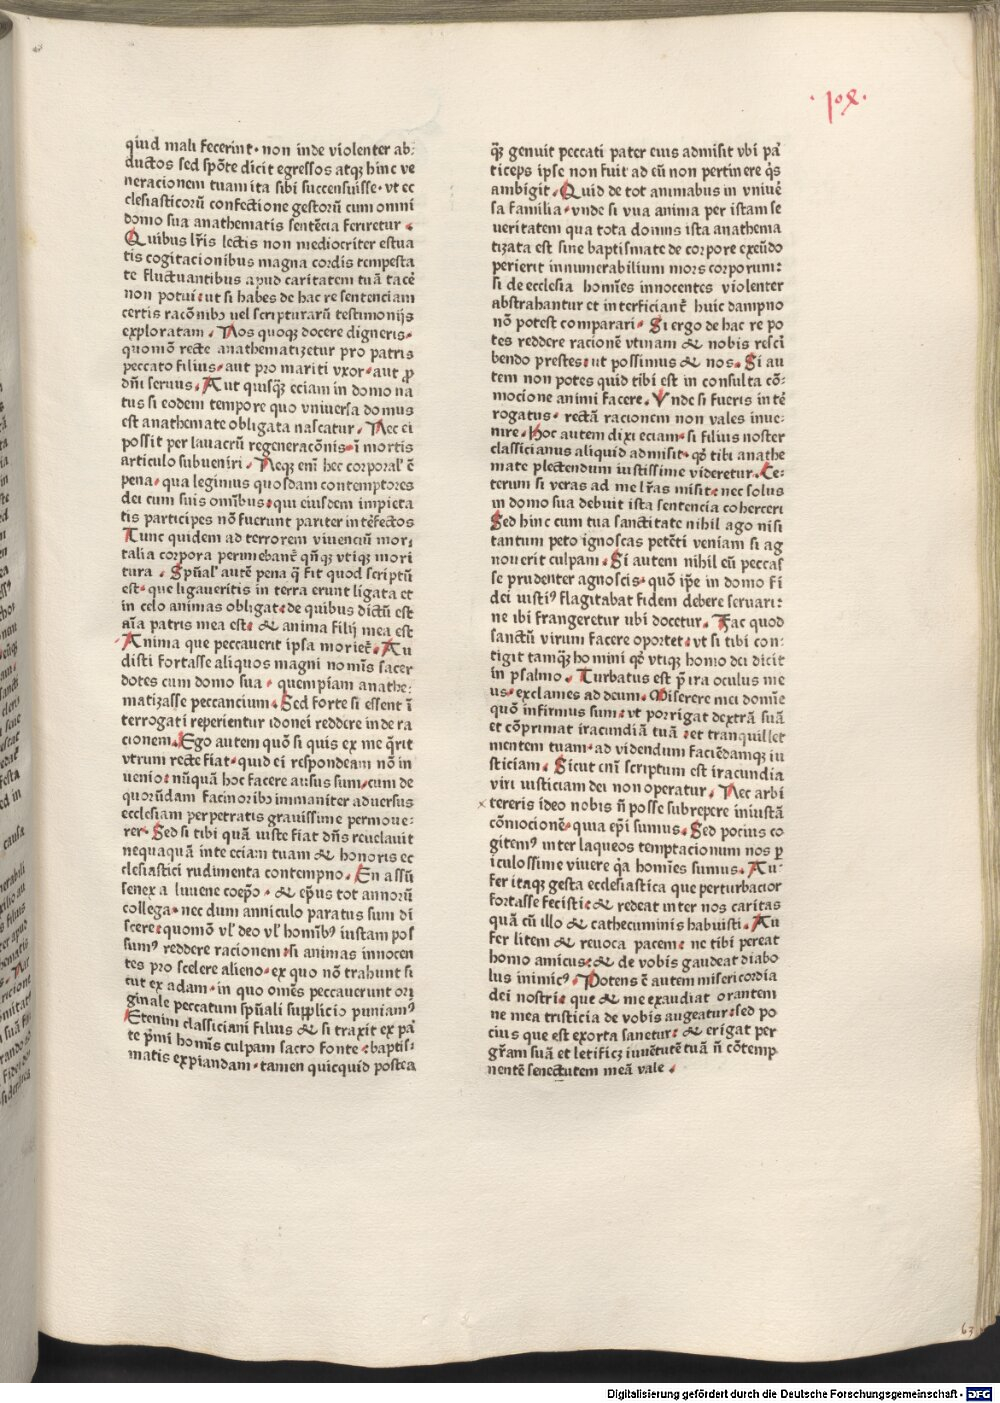 quid mali fecerint· non inde violenter ab:
ductos sed spōte dicit egressos atqꝫ hinc ve
neracionem tuam ita sibi succensuisse· vt ec
clesiasticorū confectione gestorū cum omni
domo sua anathematis sentēcia feriretur.
Quibus lr̄is lectis non mediocriter estua
tis cogitacionibus magna cordis tempesta
te fluctuantibus apud caritatem tuā tacē
non potui: ut si habes de hac re sentenciam
certis racōnibꝰ uel scripturarū testimonijs
exploratam. Nos quoqꝫ docere digneris·
quomō recte anathematizetur pro patris
peccato filius· aut pro mariti vxor· aut ꝓ
dn̄i seruus. Aut quisqꝫ eciam in domo na
tus si eodem tempore quo vniuersa domus
est anathemate obligata nascatur. Nec ei
possit per lauacrū regeneracōnis· ī mortis
articulo subueniri. Neqꝫ eni͂ hec corporal' ē
pena· qua legimus quosdam contemptores
dei cum suis omībus: qui eiusdem impieta
tis participes nō fuerunt pariter intēfectos
Tunc quidem ad terrorem viuenciū mor,
talia corpora perimebant͂ qn̄qꝫ vtiqꝫ mori
tura. Spūal' autē pena q̄ fit quod scriptū
est· que ligaueritis in terra erunt ligata et
in celo animas obligat: de quibus dictū est
aīa patris mea est: & anima filij mea est
Anima que peccauerit ipsa moriet͂. Au
disti fortasse aliquos magni nomīs sacer
dotes cum domo sua· quempiam anathe:
matizasse peccancium. Sed forte si essent ī
terrogati reperientur idonei reddere inde ra
cionem. Ego autem quō si quis ex me q̄rit
vtrum recte fiat· quid ei respondeam nō in
uenio: nūquā hoc facere ausus sum, cum de
quorūdam facinoribꝰ immaniter aduersus
ecclesiam perpetratis grauissime permoue:
rer. Sed si tibi quā iuste fiat dn̄s reuelauit
nequaquā inte eciam tuam & honoris ec
clesiastici rudimenta contempno. En assū
senex a Iuuene coepō· & ep̄us tot annorū
collega· nec dum anniculo paratus sum di
scere: quomō vl' deo vl' homībꝰ iustam pos
sumꝰ reddere racionem: si animas innocen
tes pro scelere alieno· ex quo nō trahunt si
cut ex adam· in quo omēs peccauerunt ori
ginale peccatum spūali supplicio puniamꝰ
Etenim classiciani filius & si traxit ex pa͂
te p̄mi homīs culpam sacro fonte: baptis:
matis expiandam· tamen quicquid postea
qꝫ genuit peccati pater eius admisit vbi pa͂
ticeps ipse non fuit ad eū non pertinere q̄s
ambigit. Quid de tot animabus in vniuē
sa familia· vnde si vua anima per istam se
ueritatem qua tota domus ista anathema
tizata est sine baptismate de corpore exeūdo
perierit innumerabilium mors corporum:
si de ecclesia homīes innocentes violenter
abstrahantur et interficiant͂ huic dampno
nō potest comparari. Si ergo de hac re po
tes reddere racionē vtinam & nobis resci
bendo prestes: ut possimus & nos. Si au
tem non potes quid tibi est in consulta cō:
mocione animi facere. Vnde si fueris intē
rogatus· rectā racionem non vales inue:
nire. Hoc autem dixi eciam· si filius noster
classicianus aliquid admisit· qd̄ tibi anathe
mate plectendum iustissime videretur. Ce:
terum si veras ad me lr̄as misit: nec solus
in domo sua debuit ista sentencia coherceri
Sed hinc cum tua sanctitate nihil ago nisi
tantum peto ignoscas petēti veniam si ag
nouerit culpam. Si autem nihil eū peccas
se prudenter agnoscis· quō ip̄e in domo fi
dei iustiꝰ flagitabat fidem debere seruari:
ne ibi frangeretur ubi docetur. Fac quod
sanctū virum facere oportet: vt si tibi con:
tigit tamqꝫ homini qd̄ vtiqꝫ homo dei dicit
in psalmo. Turbatus est p̄ ira oculus me
us· exclames ad deum. Miserere mei domīe
quō infirmus sum: vt porrigat dextrā suā
et cōprimat iracundiā tuā: et tranquillet
mentem tuam· ad videndum faciēdamqꝫ iu
sticiam. Sicut eni͂ scriptum est iracundia
viri iusticiam dei non operatur. Nec arbi
tereris ideo nobis n̄ posse subrepere iniustā
cōmocionē· quia ep̄i sumus. Sed pocius co
gitemꝰ inter laqueos temptacionum nos ꝑ
iculossime viuere q̄a homīes sumus. Au:
fer itaqꝫ gesta ecclesiastica que perturbacior
fortasse fecisti: & redeat inter nos caritas
quā cū illo & cathecuminis habuisti. Au
fer litem & reuoca pacem: ne tibi pereat
homo amicus: & de vobis gaudeat diabo
lus inimicꝰ. Potens ē autem misericordia
dei nostri: que & me exaudiat orantem
ne mea tristicia de vobis augeatur: sed po
cius que est exorta sanetur: & erigat per
gr̄am suā et letificꝫ iuuētutē tuā n̄ cōtemp
nentē senectutem meā vale.
63
Digitalisierung gefördert durch die Deutsche Forschungsgemeinschaft - DFG